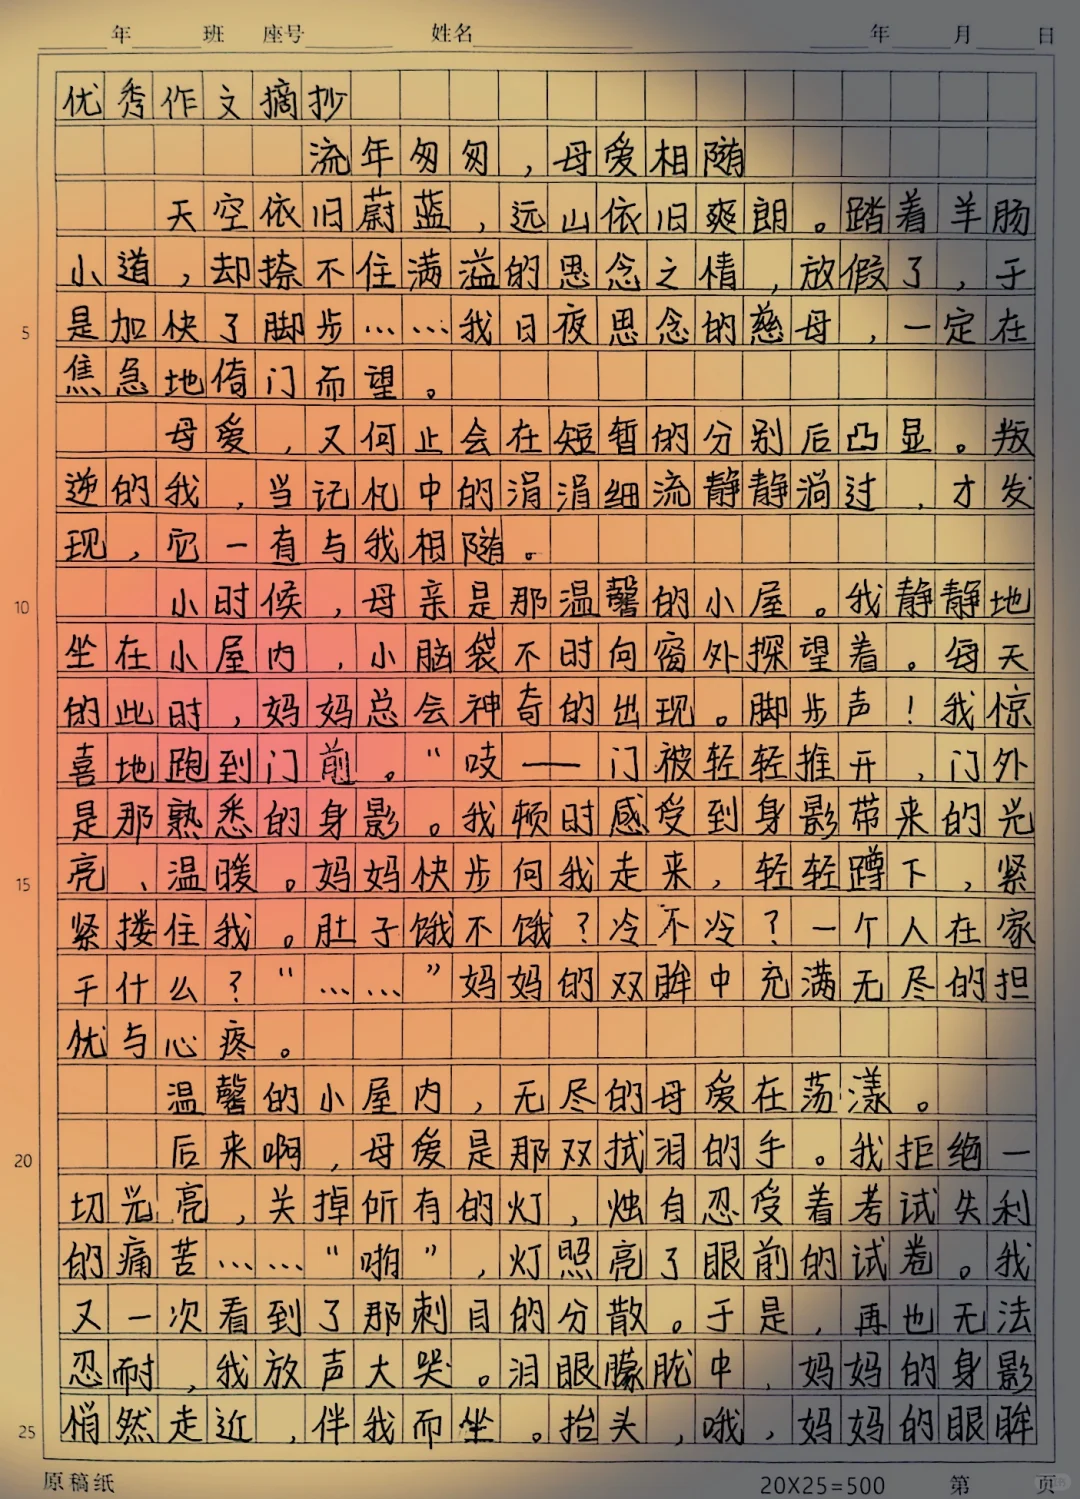 年 班 座号 姓名 年 月 日
优秀作文摘抄
流年匆匆，母爱相随
天空依旧蔚蓝，远山依旧爽朗。踏着羊肠
小道，却捺不住满溢的思念之情，放假了，于
5 是加快了脚步……我日夜思念的慈母，一定在
焦急地倚门而望。
母爱，又何止会在短暂的分别后凸显。叛
逆的我，当记忆中的涓涓细流静静淌过，才发
现，它一直与我相随。
10 小时候，母亲是那温馨的小屋。我静静地
坐在小屋内，小脑袋不时向窗外探望着。每天
的此时，妈妈总会神奇的出现。脚步声！我惊
喜地跑到门前。“吱——门被轻轻推开，门外
是那熟悉的身影。我顿时感受到身影带来的光
15 亮、温暖。妈妈快步向我走来，轻轻蹲下，紧
紧搂住我。肚子饿不饿？冷不冷？一个人在家
干什么？“……”妈妈的双眸中充满无尽的担
忧与心疼。
温馨的小屋内，无尽的母爱在荡漾。
20 后来啊，母爱是那双拭泪的手。我拒绝一
切光亮，关掉所有的灯，烛自忍受着考试失利
的痛苦……“啪”，灯照亮了眼前的试卷。我
又一次看到了那刺目的分散。于是，再也无法
忍耐，我放声大哭。泪眼朦胧中，妈妈的身影
25 悄然走近，伴我而坐。抬头，哦，妈妈的眼眸
原稿纸 20X25=500 第 页